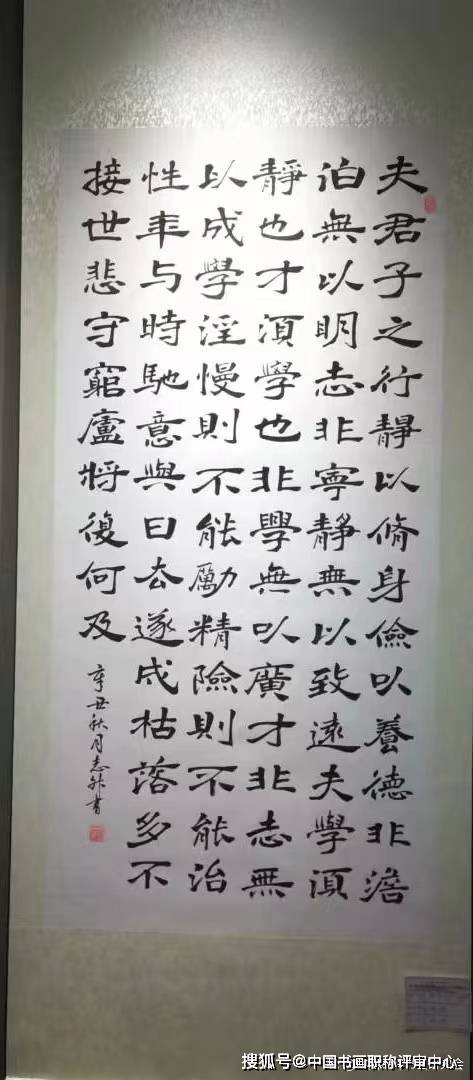 夫君子之行靜以脩身儉以養德非澹
泊無以明志非寧靜無以致遠夫學須
靜也才須學也非學無以廣才非志無
以成學淫慢則不能勵精險則不能治
性年与時馳意與日去遂成枯落多不
接世悲守窮廬將復何及
辛丑秋月志書
搜狐号@中国书画职称评审中心